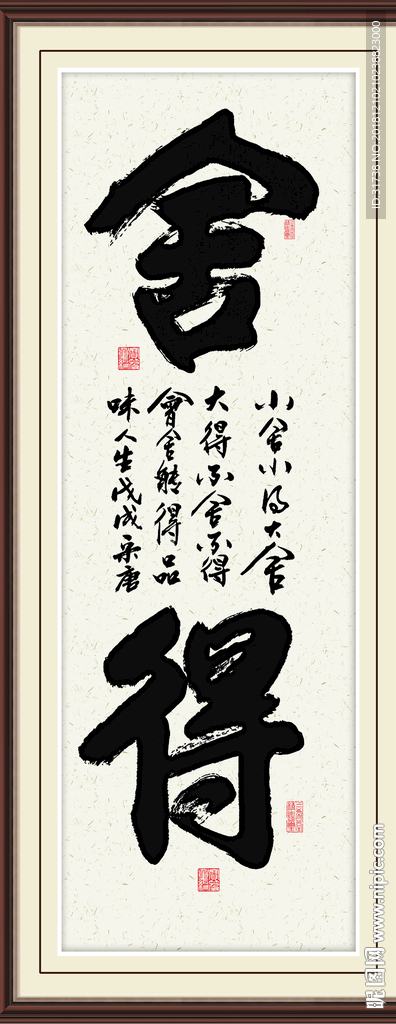 舍
小舍小得大舍
大得不舍不得
會舍能得品
味人生戊戌采唐
得
ID:31738 NO.20181210210236823000
昵图网 www.nipic.com